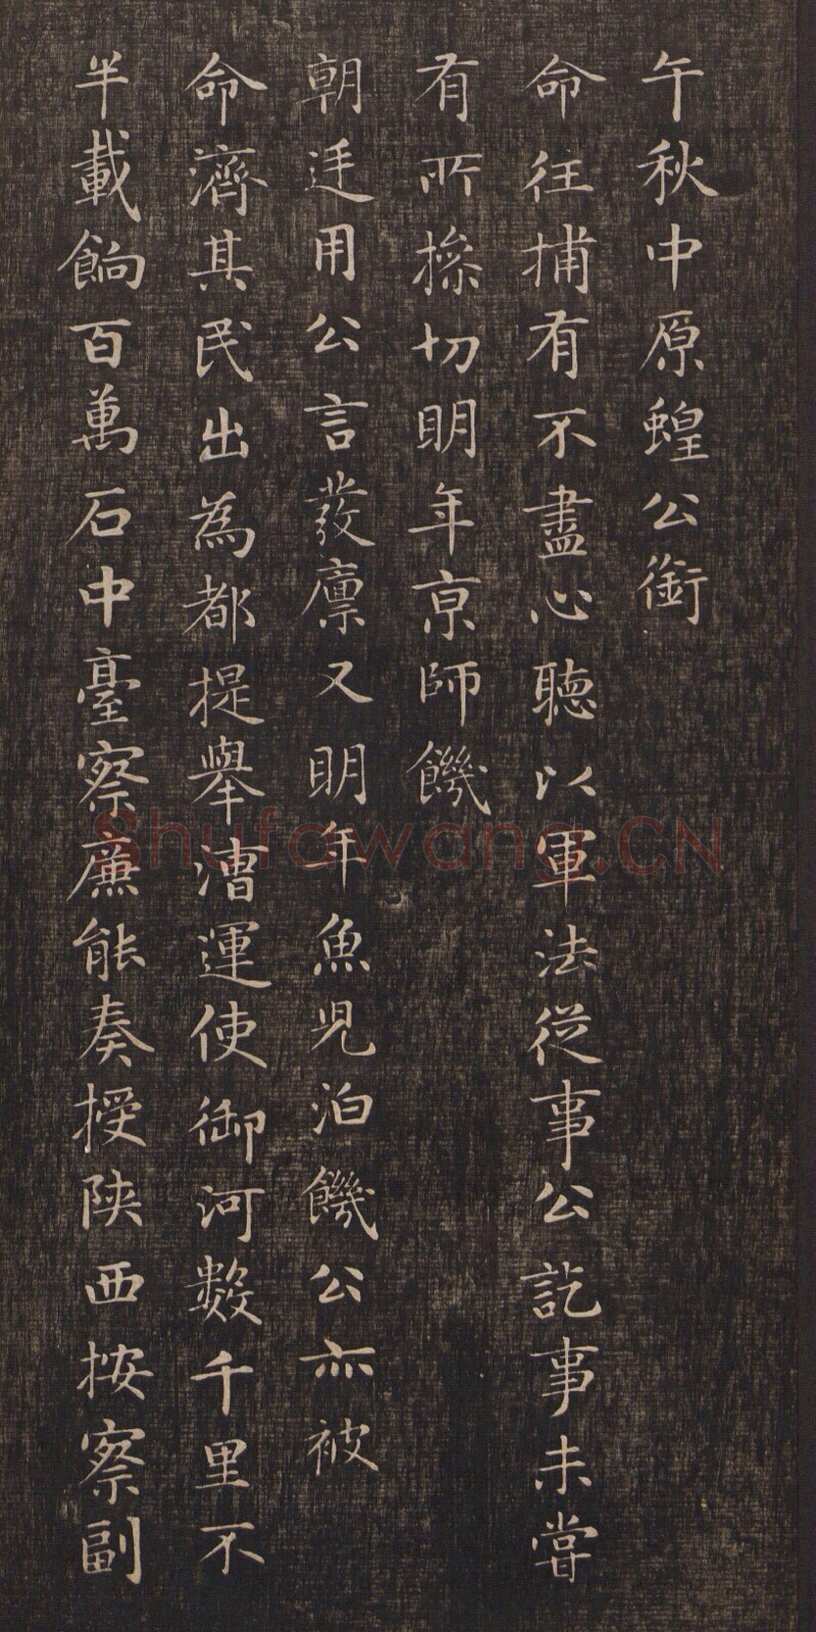 午秋中原蝗公銜
命往捕有不盡心聽以軍法從事公訖事未嘗
有所搽切明年京師饑
朝廷用公言發廪又明年魚児泊饑公亦被
命濟其民出為都提舉漕運使御河數千里不
半載餉百萬石中臺察廉能奏授陝西按察副
Shufawang.CN